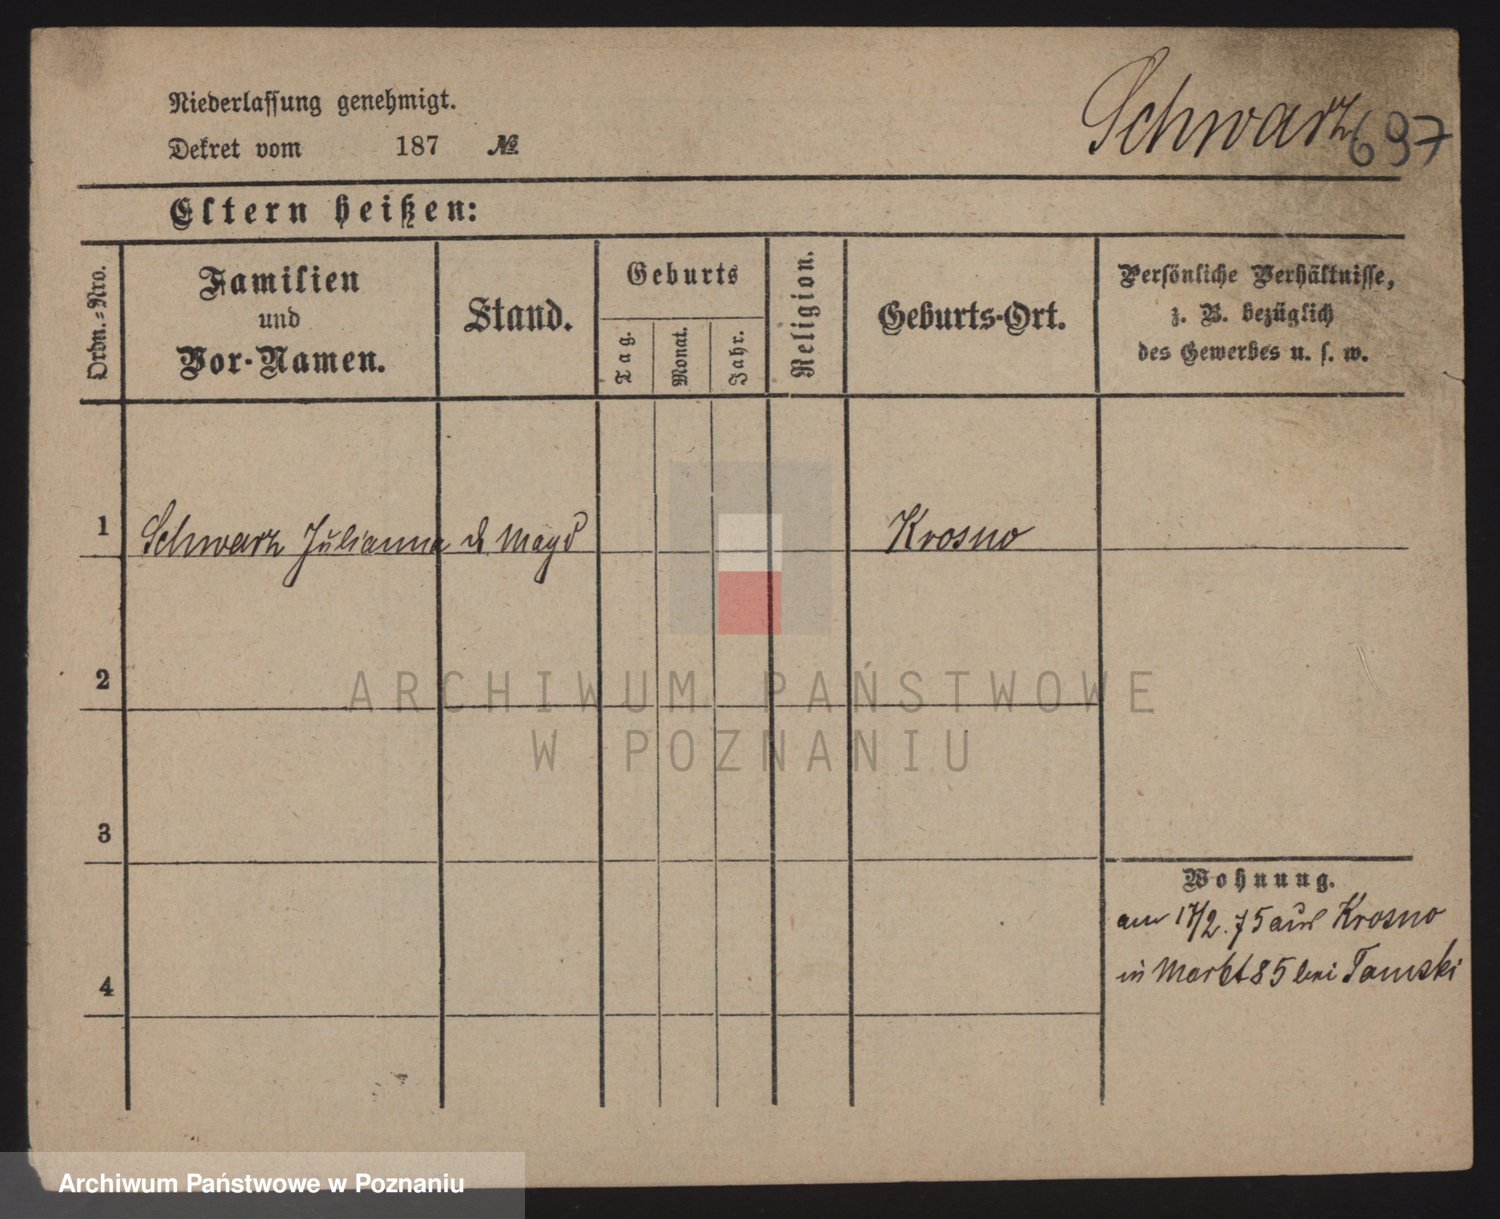 Niederlassung genehmigt.
Schwarz 697
Dekret vom 187 №
Eltern heißen:
Ordn.-Nro.
Familien
und
Vor-Namen.
Stand.
Geburts
Tag.
Monat.
Jahr.
Religion.
Geburts-Ort.
Persönliche Verhältnisse,
z. B. bezüglich
des Gewerbes u. s. w.
1 Schwarz Julianna d Magd Krosno
2
3
4
Wohnung.
am 17/2.75 aus Krosno
in Markt 85 bei Tomski
ARCHIWUM PAŃSTWOWE
W POZNANIU
Archiwum Państwowe w Poznaniu